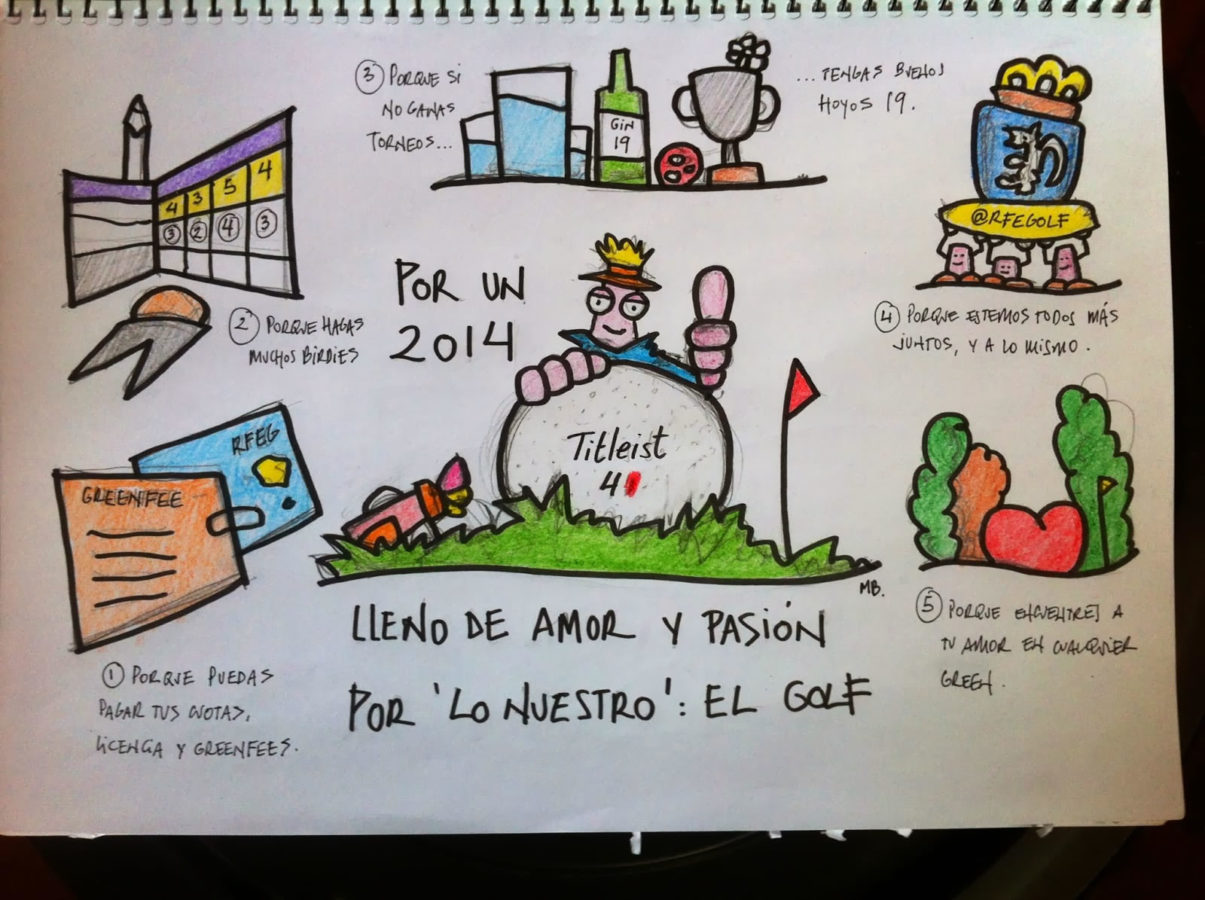 ③ PORQUE SI
NO GANAS
TORNEOS...
GIN
19
... TENGAS BUENOS
HOYOS 19.
@RFEGOLF
4 3 5 4
③ ② ④ ③
② PORQUE HAGAS
MUCHOS BIRDIES
POR UN
2014
④ PORQUE ESTEMOS TODOS MÁS
JUNTOS, Y A LO MISMO.
Titleist
4
RFEG
GREENFEE
MB.
LLENO DE AMOR Y PASIÓN
POR 'LO NUESTRO': EL GOLF
① PORQUE PUEDAS
PAGAR TUS CUOTAS,
LICENCIA Y GREENFEES.
⑤ PORQUE ENCUENTRES A
TU AMOR EN CUALQUIER
GREEN.